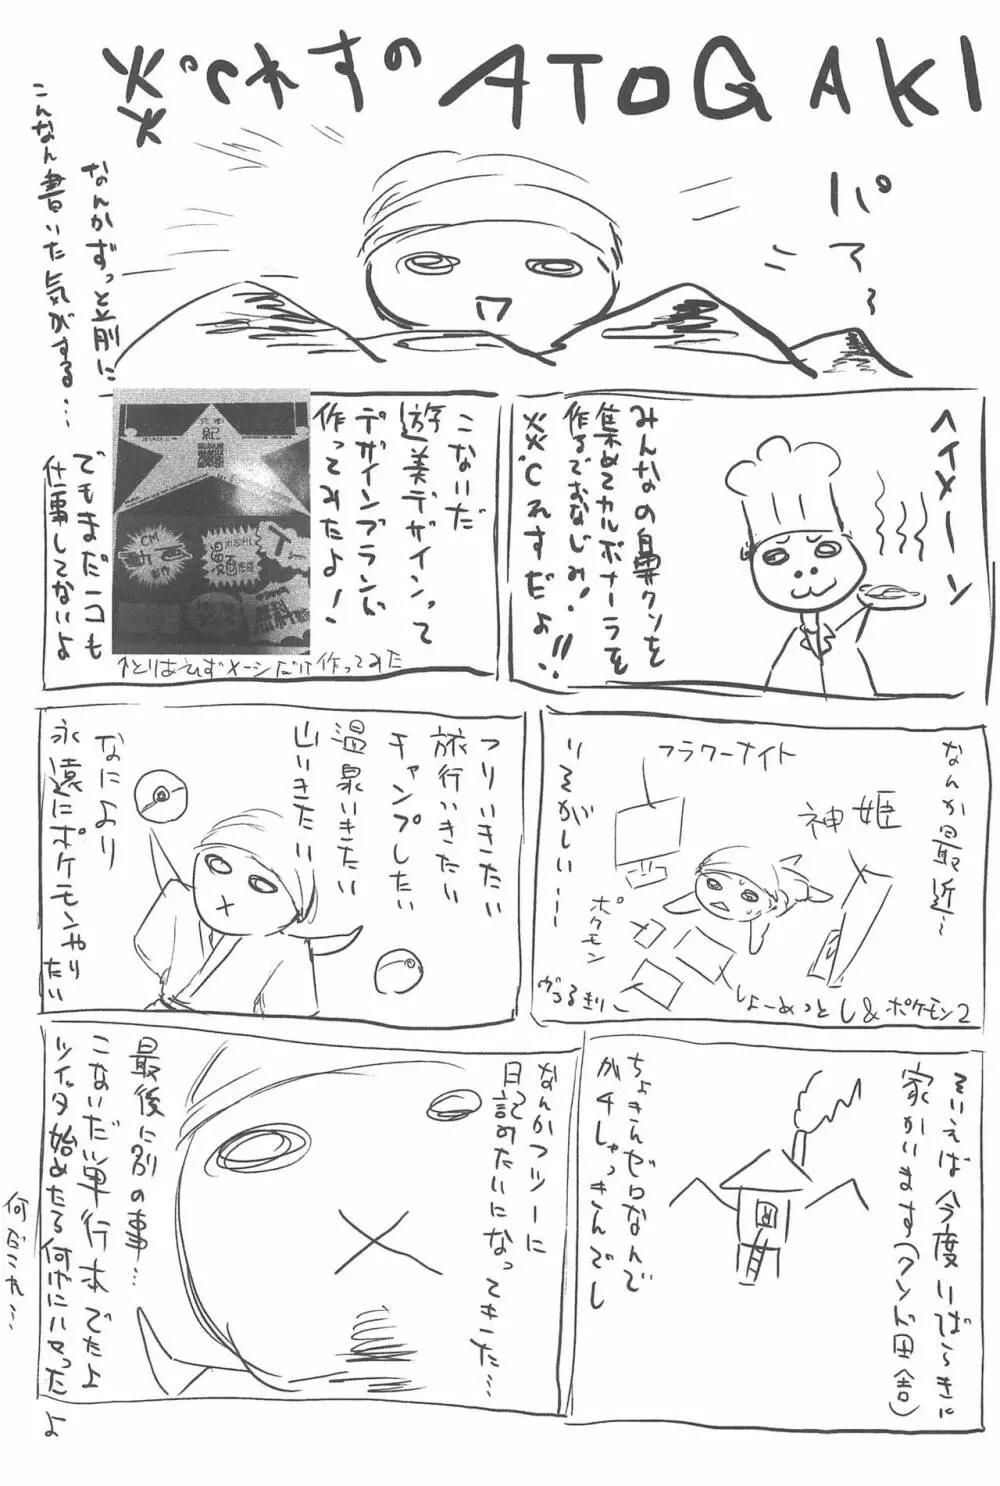 炎℃れすのATOGAKI
パァ〜
なんかずっと前に
こんなん書いた気がする…
ヘイメーン
みんなの鼻クソを
集めてカルボナーラを
作るでおなじみ!
炎℃れすだよ!!
こないだ
遊美デザインって
デザインブランド
作ってみたよ!
CM
↑とりはえずメーシだけ作ってみた
でもまだニコも
仕事してないよ
なんか最近〜
いそがしい…
フラワーナイト
神姫
ポケモン
ヴァるきりー
しょーめっとし&ポケモン2
つりいきたい
旅行いきたい
チャンプしたい
温泉いきたい
山いきたい
なにより
永遠にポケモンやり
たい
そいえば今度いばらきに
家かいます(クソド田舎)
ちょきんゼロなんで
ガチしゃっきんでし
なんかフツーに
日記みたいになってきた…
最後に別の事…
こないだい単行本でたよ
ツイッタ始めたる何かにハマった
よ
何だこれ…